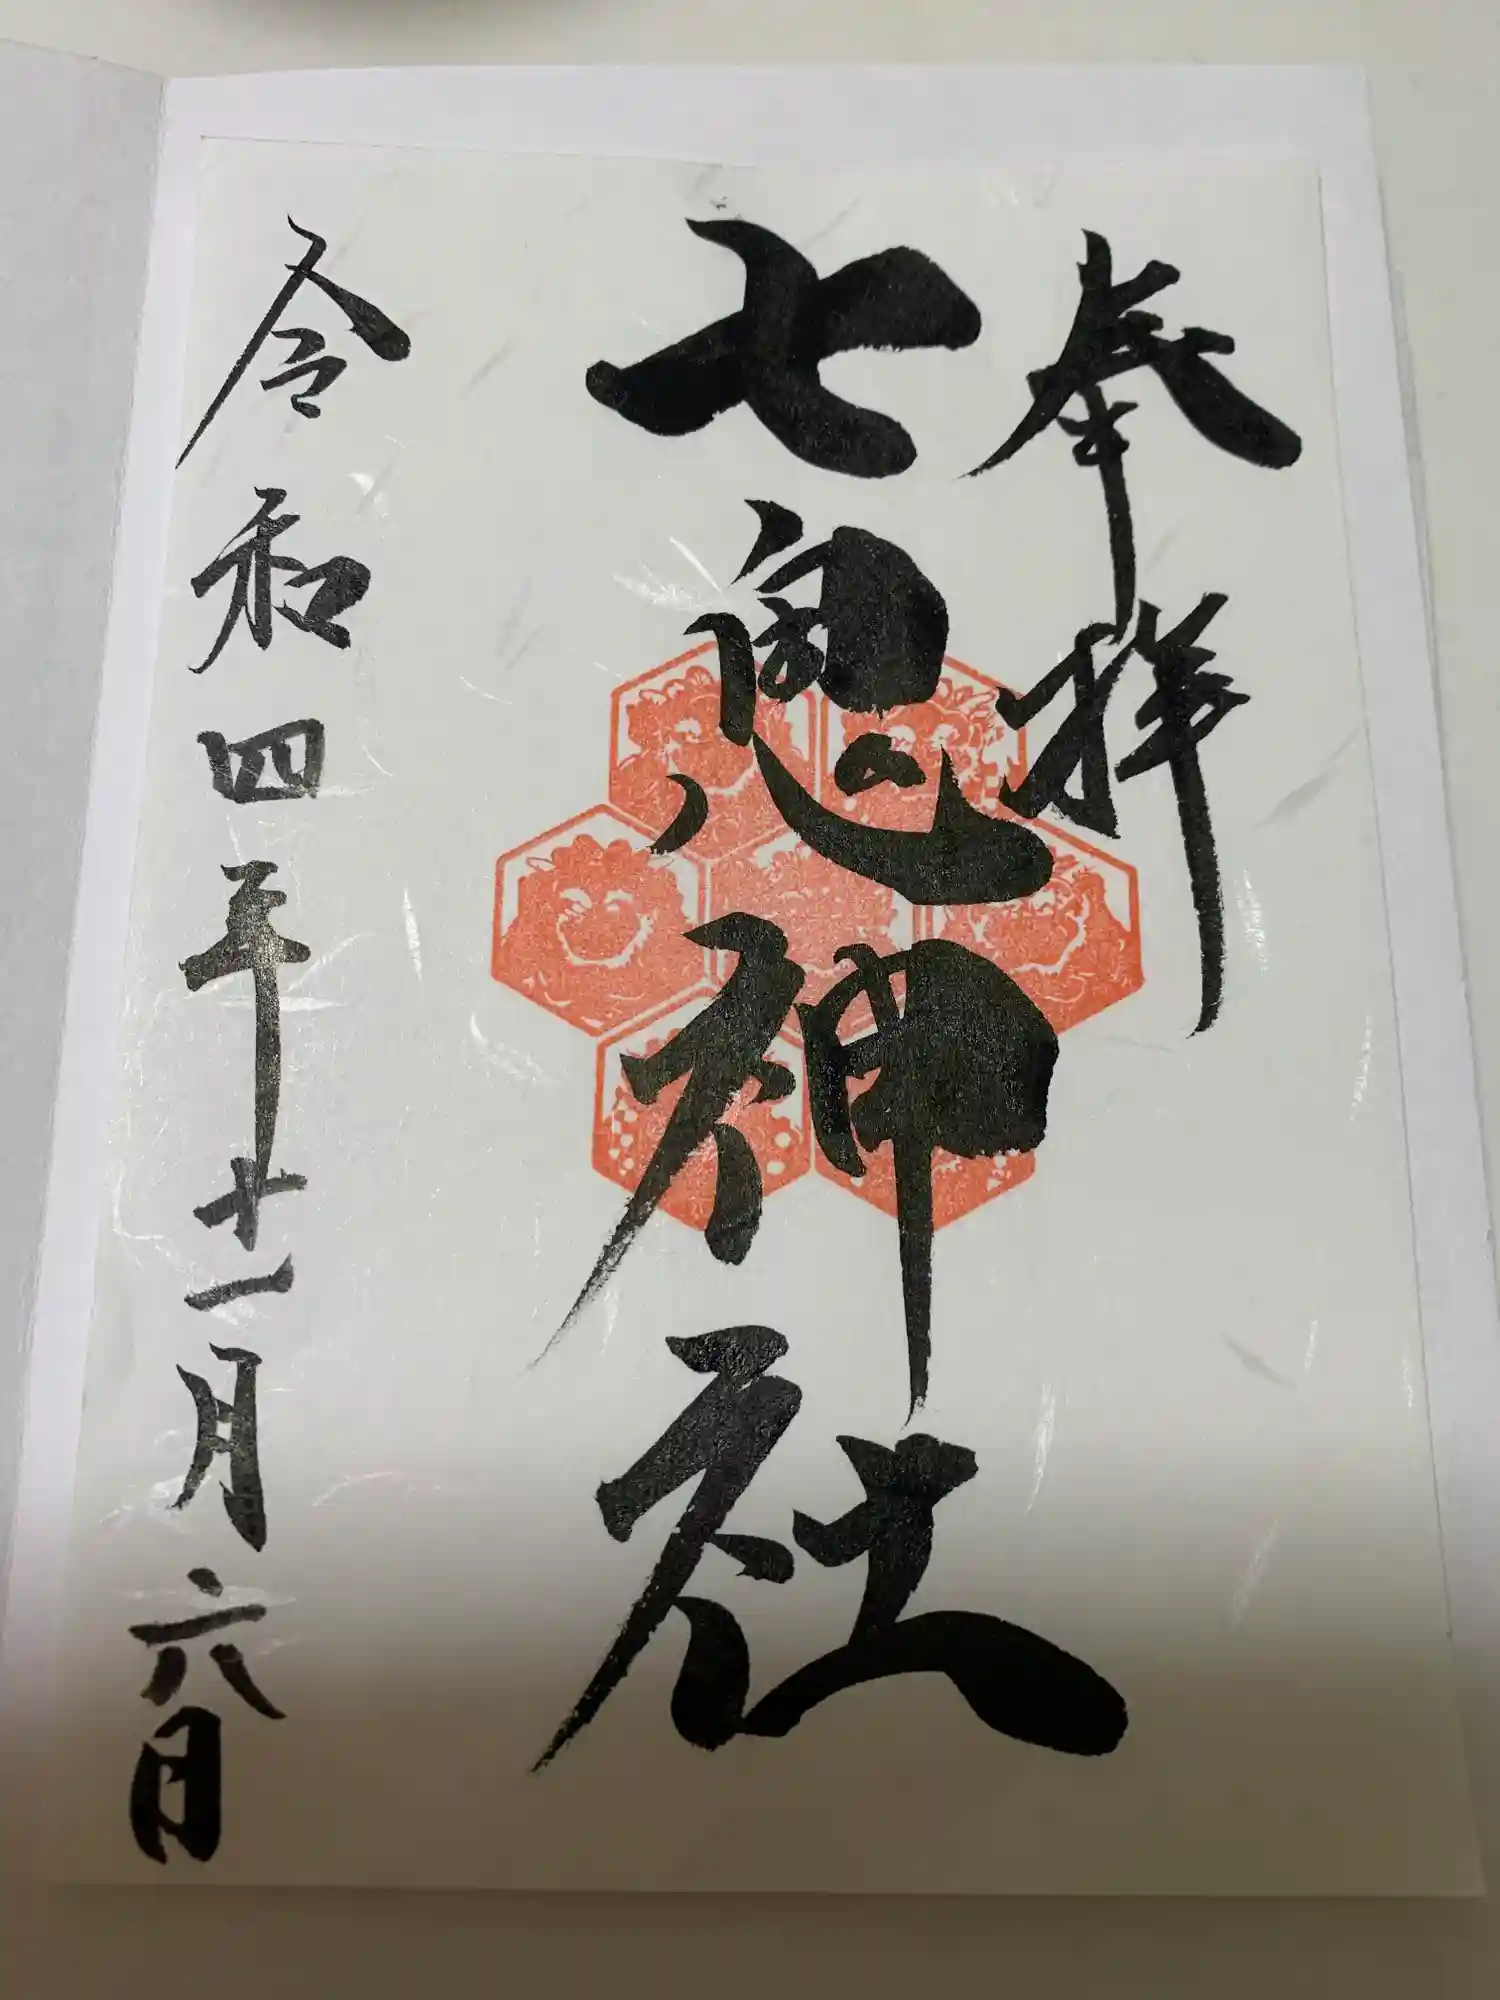 奉拝
七鬼神社
令和四年十一月六日